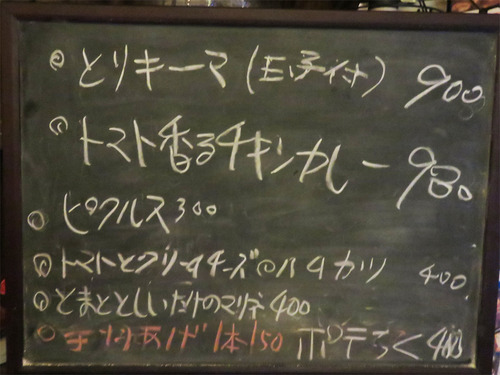 とりキーマ(玉子付) 900
トマト香るチキンカレー 980
ピクルス300
トマトとクリームチーズのハムカツ 400
とまととしいたけのマリネ 400
手羽あげ1本150 ポテさく